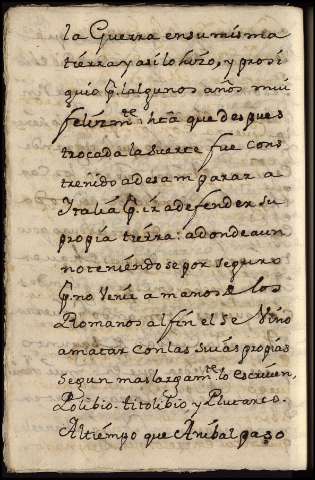 la Guerra en su misma
tierra y asi lo hizo, y prosi
guio pr. algunos años mui
felizmte. hta. que despues
trocada la suerte fue cons
treñido a desamparar a
Italia pr. ir a defender su
propia tierra: a donde aun
no teniendose por seguro
pr. no venir a manos de los
Romanos al fin el se vino
a matar con las suias propias
segun mas largamte. lo escriven,
Polibio. titolibio y Plutarco.
Al tiempo que Anibal paso